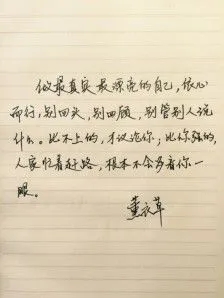 做最真实最漂亮的自己，依心
而行，别回头，别回顾，别管别人说
什么。比不上的，才议论你，比你强的，
人家忙着赶路，根本不会多看你一
眼。
薰衣草